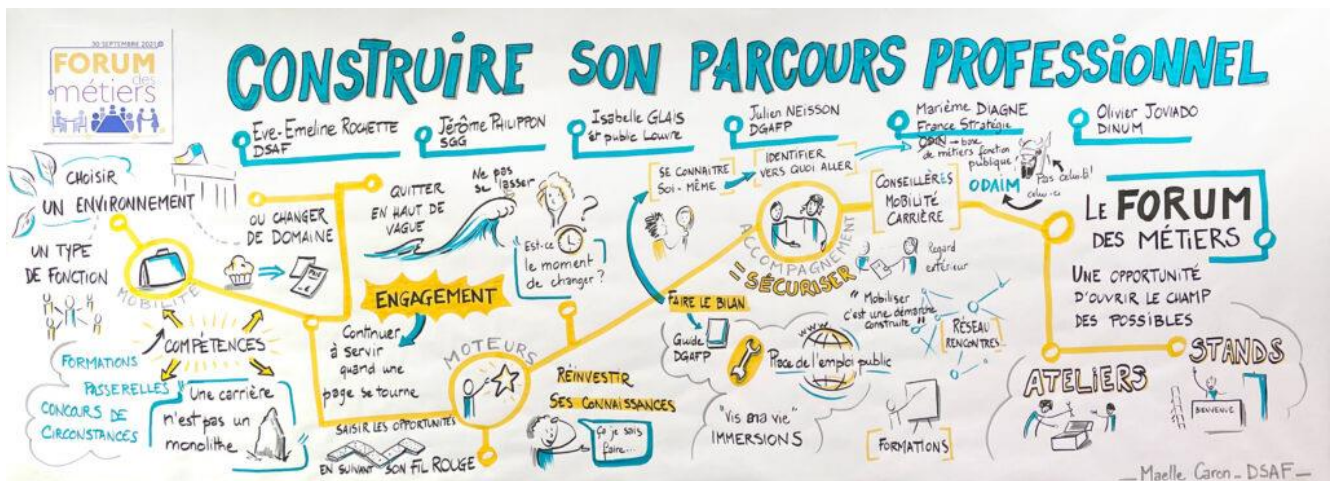 30 SEPTEMBRE 2021
FORUM
des
métiers
CONSTRUIRE SON PARCOURS PROFESSIONNEL
Eve-Emeline ROCHETTE
DSAF
Jérôme PHILIPPON
SGG
Isabelle GLAIS
ét public Louvre
Julien NEISSON
DGAFP
Marième DIAGNE
France Stratégie
ODIN → base
de métiers fonction
publique
Olivier JOVIADO
DINUM
CHOISIR
UN ENVIRONNEMENT
UN TYPE
DE FONCTION
MOBILITÉ
OU CHANGER
DE DOMAINE
COMPÉTENCES
FORMATIONS
PASSERELLES
CONCOURS DE
CIRCONSTANCES
"Une carrière
n'est pas un
monolithe"
QUITTER
EN HAUT DE
VAGUE
Ne pas
se lasser
"Est-ce
le moment
de changer ?
ENGAGEMENT
Continuer
à servir
quand une
page se tourne
MOTEURS
SAISIR LES OPPORTUNITÉS
EN SUIVANT SON FIL ROUGE
RÉINVESTIR
SES CONNAISSANCES
Ça je sais
faire...
SE CONNAITRE
SOI-MÊME
IDENTIFIER
VERS QUOI ALLER
ACCOMPAGNEMENT
= SÉCURISER
FAIRE LE BILAN
Guide
DGAFP
WWW
Place de l'emploi public
"Vis ma vie"
IMMERSIONS
CONSEILLÈRES
MOBILITÉ
CARRIÈRE
ODAIM
Pas celui-là!
celui-ci
Regard
extérieur
"Mobiliser
c'est une démarche
construite"
RÉSEAU
RENCONTRES
FORMATIONS
LE FORUM
DES MÉTIERS
UNE OPPORTUNITÉ
D'OUVRIR LE CHAMP
DES POSSIBLES
ATELIERS
STANDS
BIENVENUE
_ Maelle Caron _ DSAF _